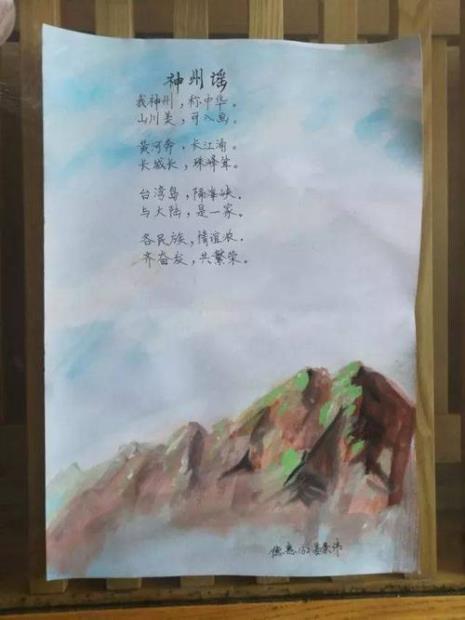 神州谣
我神州，称中华。
山川美，可入画。
黄河奔，长江涌。
长城长，珠峰耸。
台湾岛，隔海峡。
与大陆，是一家。
各民族，情谊浓。
齐奋发，共繁荣。